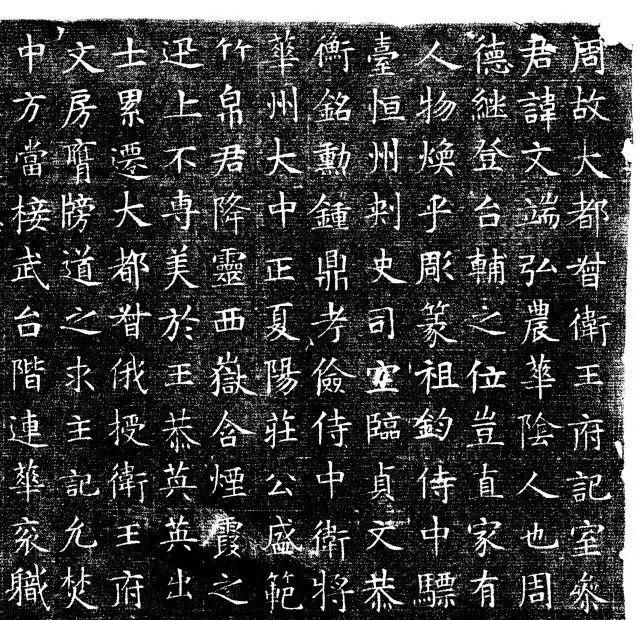 周故大都督衛王府記室叅
君諱文端弘農華陰人也周
德継登台輔之位豈直家有
人物煥乎彫篆祖鈞侍中驃
臺恒州刾史司空臨貞文恭
衡銘勳鍾鼎考儉侍中衛將
華州大中正夏陽莊公盛範
竹帛君降靈西嶽含煙霞之
迅上不専美於王恭英英出
士累遷大都督俄授衛王府
文房膺牓道之求主記允焚
中方當接武台階連華衮職